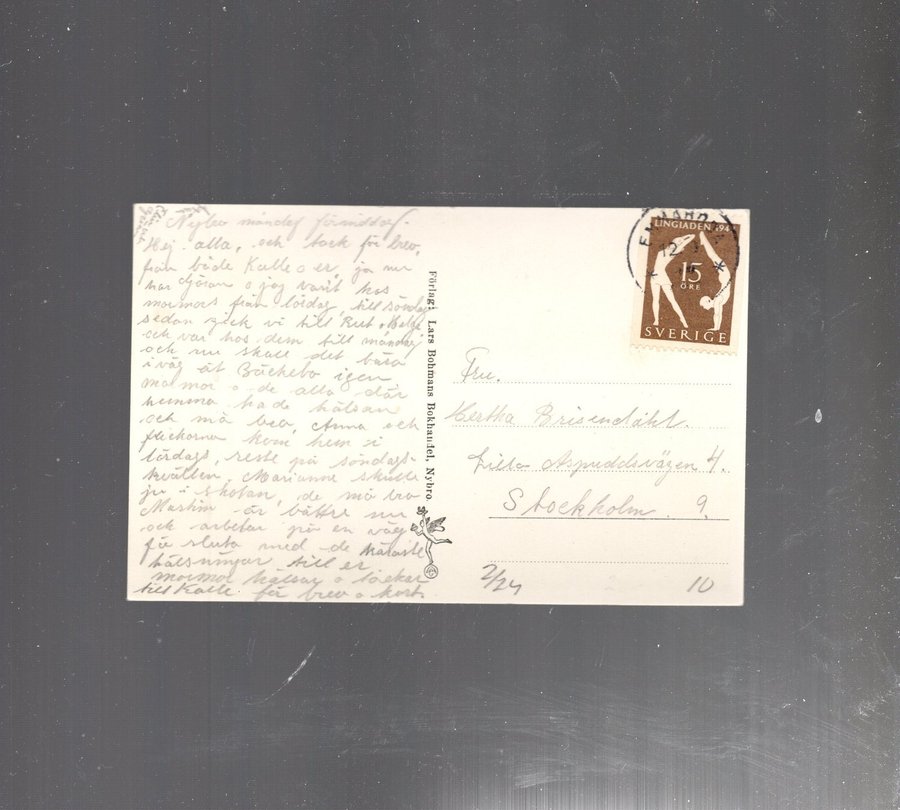 Nybro måndag förmiddag
Hej alla, och tack för brev,
från både Kalle o er, ja nu
har o jag varit hos
mormors från lördag till söndag
sedan gick vi till Rut o Helge
och var hos dem till måndag
och nu skall det bära
iväg åt Bäckebo igen
mormor o de alla där
hemma hade hälsan
och må bra, Anna och
flickorna kom hem i
lördags, reste på söndags-
kvällen, Marianne skulle
ju i skolan, de må bra
Martin är bättre nu
och arbetar på en väg
får sluta med de käraste
hälsningar till er
mormor hälsar o tackar
till Kalle för brev o kort.
Förlag: Lars Bohmans Bokhandel, Nybro.
LINGIADEN 194
12
15
ÖRE
SVERIGE
Fru.
Hertha
Lilla Aspuddsvägen 4.
Stockholm. 9.
2/24
10